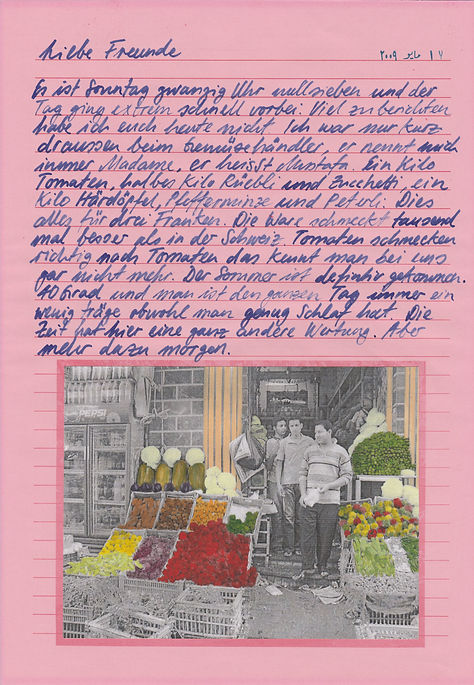 Liebe Freunde
١٧ مايو ٢٠٠٩
Es ist Sonntag zwanzig Uhr nullsieben und der
Tag ging extrem schnell vorbei. Viel zu berichten
habe ich euch heute nicht. Ich war nur kurz
draussen beim Gemüsehändler, er nennt mich
immer Madame, er heisst Mustafa. Ein Kilo
Tomaten, halbes Kilo Rüebli und Zucchetti, ein
Kilo Härdöpfel, Pfefferminze und Peterli. Dies
alles für drei Franken. Die Ware schmeckt tausend
mal besser als in der Schweiz. Tomaten schmecken
richtig nach Tomaten das kennt man bei uns
gar nicht mehr. Der Sommer ist definitiv gekommen.
40 Grad und man ist den ganzen Tag immer ein
wenig träge obwohl man genug Schlaf hat. Die
Zeit hat hier eine ganz andere Wertung. Aber
mehr dazu morgen.
PEPSI